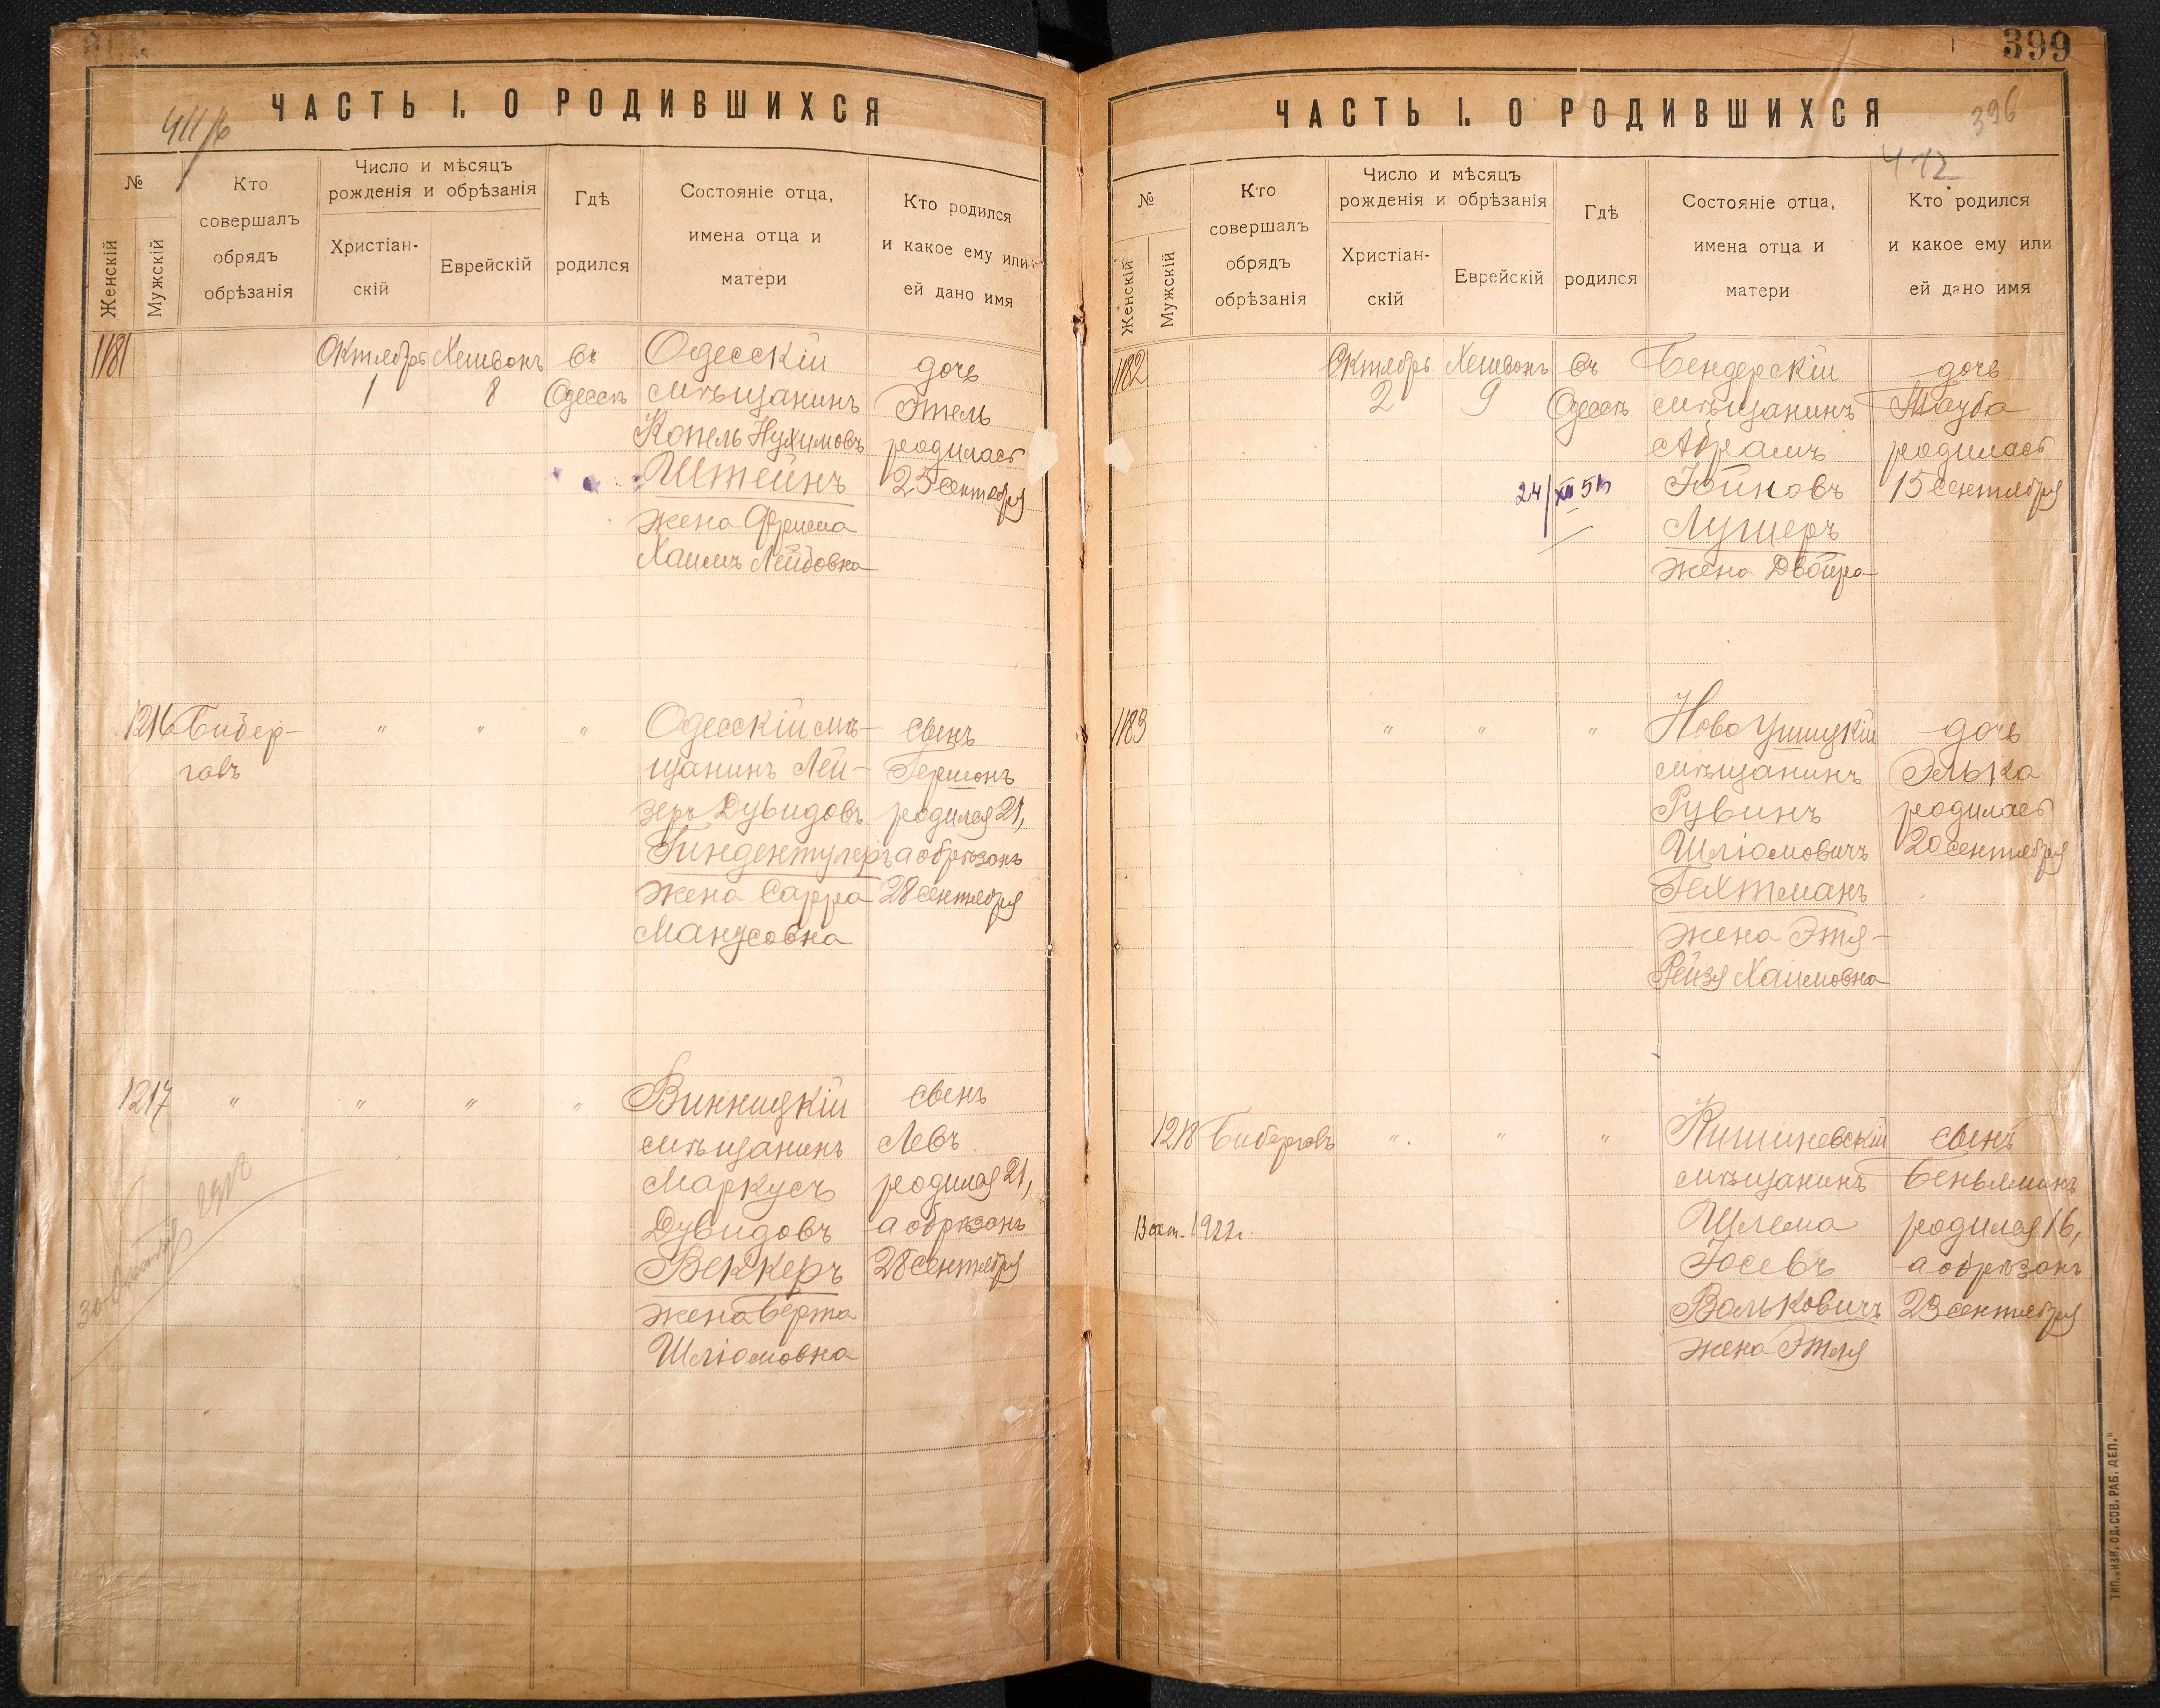 411/б
ЧАСТЬ I. О РОДИВШИХСЯ
№
Женскій
Мужскій
Кто
совершалъ
обрядъ
обрѣзанія
Число и мѣсяцъ
рожденія и обрѣзанія
Христіан-
скій
Еврейскій
Гдѣ
родился
Состояніе отца,
имена отца и
матери
Кто родился
и какое ему или
ей дано имя
1181
Октябрь
1
Хешвонъ
8
въ
Одессѣ
Одесскій
мѣщанинъ
Копель Нухимовъ
Штейнъ
жена Фрима
Хаимъ Лейбовна
дочь
Этель
родилась
25 сентября
1216
Бибер-
галъ
"
"
"
Одесскій мѣ-
щанинъ Лей-
зеръ Дувидовъ
Гиндентулеръ
жена Сарра
Манусовна
сынъ
Гершонъ
родился 21,
а обрѣзанъ
28 сентября
1217
"
"
"
"
Винницкій
мѣщанинъ
Маркусъ
Дувидовъ
Веккеръ
жена Берта
Шліомовна
сынъ
Левъ
родился 21,
а обрѣзанъ
28 сентября
399
396
412
ЧАСТЬ I. О РОДИВШИХСЯ
№
Женскій
Мужскій
Кто
совершалъ
обрядъ
обрѣзанія
Число и мѣсяцъ
рожденія и обрѣзанія
Христіан-
скій
Еврейскій
Гдѣ
родился
Состояніе отца,
имена отца и
матери
Кто родился
и какое ему или
ей дано имя
1182
Октябрь
2
Хешвонъ
9
въ
Одессѣ
24/XII
Бендерскій
мѣщанинъ
Абрамъ
Іойновъ
жена Двойра
дочь
Тауба
родилась
15 сентября
1183
"
"
"
Ново Ушицкій
мѣщанинъ
Рувинъ
Шліомовичъ
Гехтманъ
жена Этя-
Рейзя Хаимовна
дочь
Элька
родилась
20 сентября
1218
Бибергалъ
"
"
"
13 окт. 1922 г.
Кишиневскій
мѣщанинъ
Шлема
Іосевъ
Вальковичъ
жена Этля
сынъ
Беньяминъ
родился 16,
а обрѣзанъ
23 сентября
ТИП. „ИЗВ. ОД. СОВ. РАБ. ДЕП."